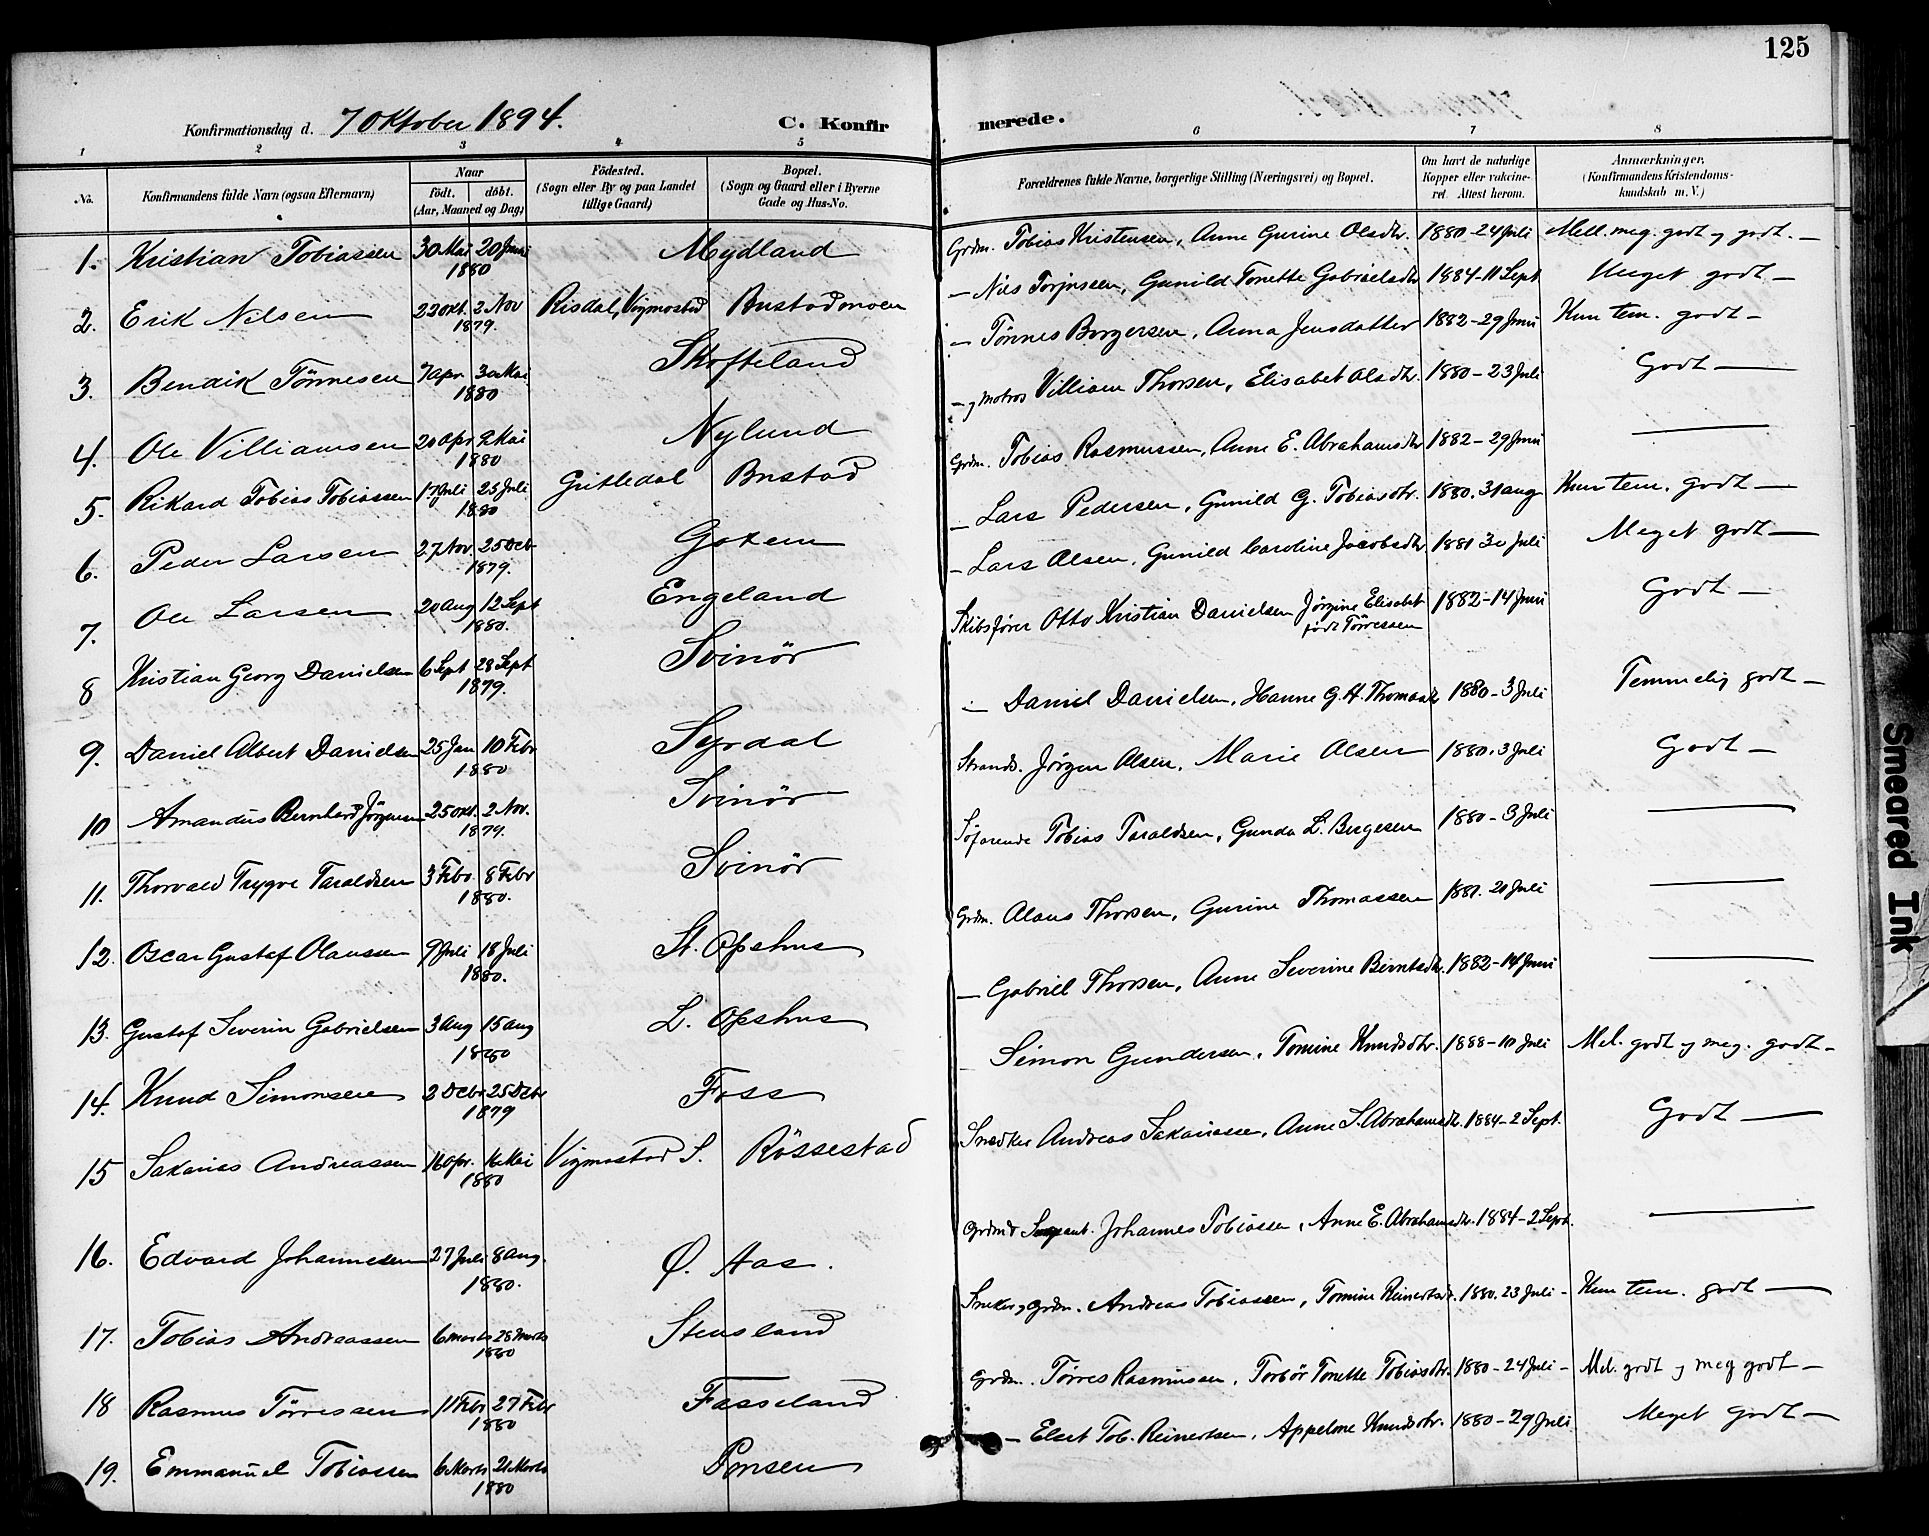 125
Konfirmationsdag d. 7 Oktober 1894. C. Konfirmerede.
1 2 3 4 5 6 7 8
No. Konfirmandens fulde Navn (ogsaa Efternavn) Naar födt. döbt. (Aar, Maaned og Dag) Födested. (Sogn eller By og paa Landet tillige Gaard) Bopæl. (Sogn og Gaard eller i Byerne Gade og Hus-No. Forældrenes fulde Navne, borgerlige Stilling (Næringsvei) og Bopæl. Om havt de naturlige Kopper eller vaccineret. Attest herom. Anmærkninger. (Konfirmandens Kristendomskundskab m. V.)
1. Kristian Tobiassen 30 Mai 20 Juni 1880 Mydland Grdm. Tobias Kristensen, Anne Gurine Olsdtr. 1880-24 Juli Mell. meg. godt og godt. —
2. Erik Nilsen 22 Okt. 2 Nov 1879. Risdal, Vigmostad Bustadmoen — Nils Torjussen, Gunild Tonette Gabrielsdtr 1884-11 Sept Meget godt —
3. Bendik Tönnesen 7 Apr. 30 Mai 1880 Skofteland — Tönnes Borgersen, Anna Jensdatter 1882-29 Juni Kun tem. godt —
4. Ole Villiamsen 20 Apr 2 Mai 1880 Nylund — og Matros Villiam Thorsen, Elisabet Olsdtr. 1880-23 Juli Godt —
5. Rikard Tobias Tobiassen 17 Juli 25 Juli 1880 Gritledal Bustad Grdm. Tobias Rasmussen, Anne E. Abrahamsdtr 1882-29 Juni —
6. Peder Larsen 27 Nov. 25 Dcb 1879. Gaxem — Lars Pedersen, Gunild G. Tobiasdtr. 1880. 31 Aug Kun tem. godt —
7. Ole Larsen 20 Aug 12 Sept 1880. Engeland — Lars Olsen, Gunild Caroline Jacobsdtr 1881 30 Juli Meget godt —
8 Kristian Georg Danielsen 6 Sept 28 Sept 1879. Svinör Skibsförer Otto Kristian Danielsen Jörgine Elisabet födt Törressen 1882-14 Juni Godt —
9. Daniel Albert Danielsen 25 Jan 10 Febr 1880 Syrdal — Daniel Danielsen, Hanne G. H. Thomasdtr 1880-3 Juli Temmelig godt —
10 Amandus Bernhard Jörgensen 25 Okt. 2 Nov. 1879. Svinör Strands. Jörgen Olsen, Marie Olsen 1880. 3 Juli Godt —
11. Thorvald Trygve Taraldsen 3 Febr. 8 Febr 1880. Svinör Söfarende Tobias Taraldsen, Gunda L. Bergesen 1880-3 Juli —
12. Oscar Gustaf Olaussen 9 Juli 18 Juli 1880. St. Opshus Grdm. Olaus Thorsen, Gurine Thomassen 1881. 21 Juli —
13. Gustaf Severin Gabrielsen 3 Aug 15 Aug 1880 L. Opshus — Gabriel Thorsen, Anne Severine Berntsdtr. 1882-14 Juni —
14. Knud Simonsen 2 Dcbr 25 Dcbr 1879 Foss — Simon Gundersen, Tomine Knudsdtr. 1888-10 Juli Mel. godt og meg. godt —
15 Sakarias Andreassen 16 Apr. 16 Mai 1880 Vigmostad S. Rössestad Snedker Andreas Sakariassen, Anne S. Abrahamsdtr. 1884-2 Sept. Godt —
16. Edvard Johannesen 27 Juli 8 Aug. 1880. Ø. Aas. Grdmd Sergeant. Johannes Tobiassen, Anne E. Abrahamsdtr. 1884-2 Sept. —
17. Tobias Andreassen 6 Marts 28 Marts 1880 Stensland Snedker og Grdm. Andreas Tobiassen, Tomine Reinertsdtr. 1880. 23 Juli - Kun tem. godt —
18 Rasmus Törressen 11 Febr 27 Febr 1880 Fasseland Grdm. Törres Rasmussen, Torbör Tonette Tobiasdtr. 1880-24 Juli - Mel. godt og meg godt —
19. Emmanuel Tobiassen 6 Marts 21 Marts 1880 Ponsen — Elert Tob. Reinertsen, Appelone Knudsdtr. 1880-29 Juli. Meget godt —
Smeared Ink